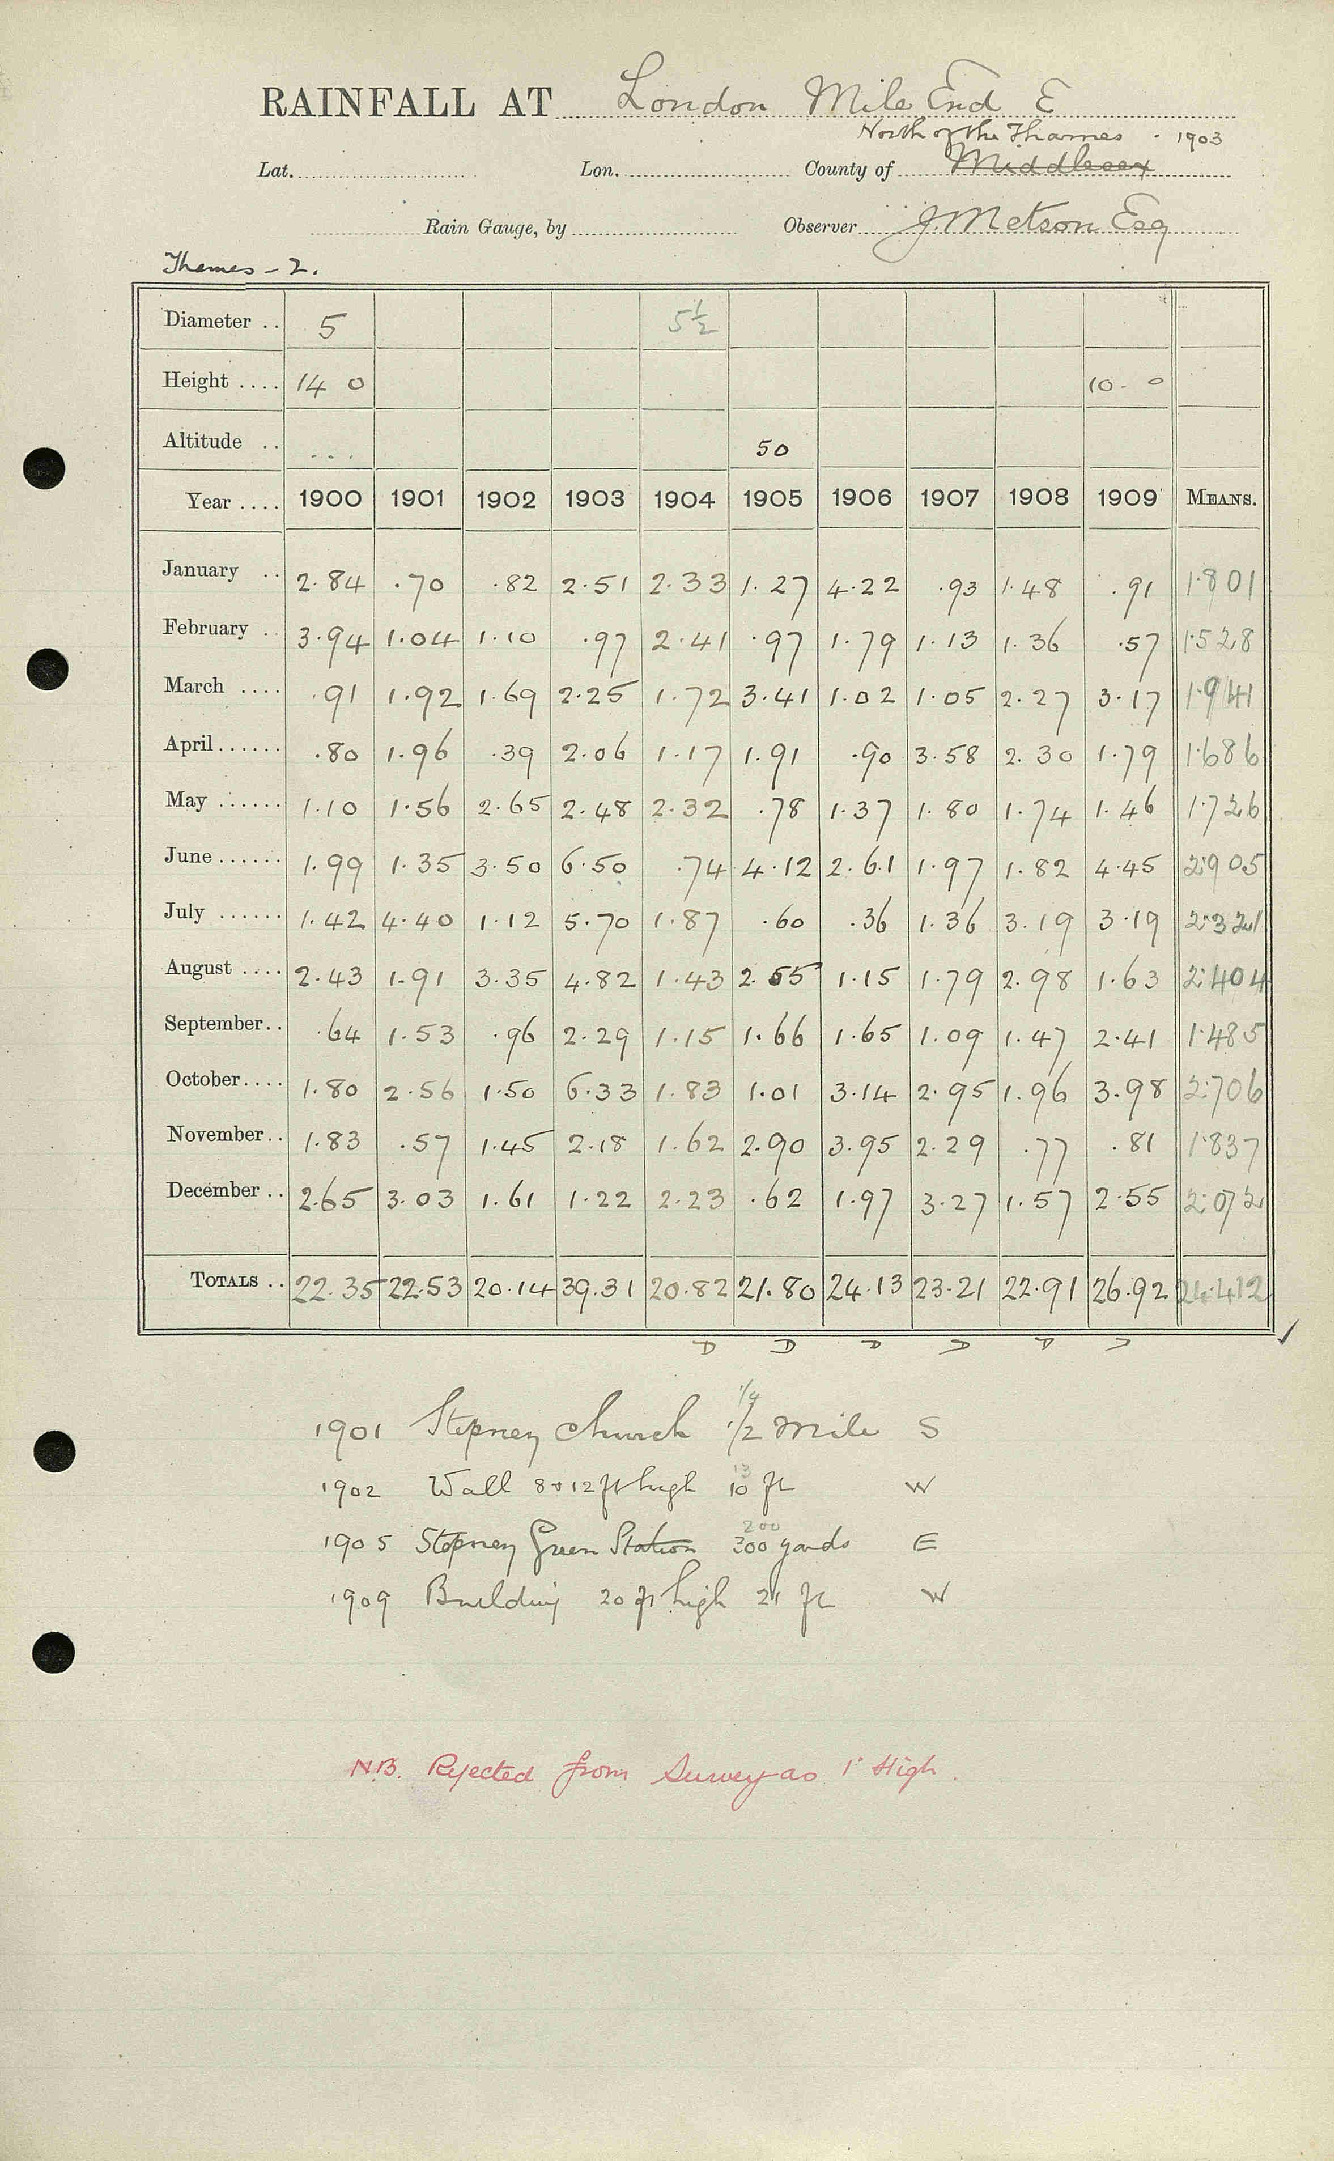 RAINFALL AT London Mile End E
North of the Thames - 1903
Lat. Lon. County of Middlesex
Rain Gauge, by Observer J. Metson Esq
Thames - 2.
Diameter .. 5 5½
Height .... 14 0 10 - 0
Altitude .. ... 50
Year .... 1900 1901 1902 1903 1904 1905 1906 1907 1908 1909 MEANS.
January .. 2.84 .70 .82 2.51 2.33 1.27 4.22 .93 1.48 .91 1.801
February .. 3.94 1.04 1.10 .97 2.41 .97 1.79 1.13 1.36 .57 1.528
March .... .91 1.92 1.69 2.25 1.72 3.41 1.02 1.05 2.27 3.17 1.941
April ...... .80 1.96 .39 2.06 1.17 1.91 .90 3.58 2.30 1.79 1.686
May ...... 1.10 1.56 2.65 2.48 2.32 .78 1.37 1.80 1.74 1.46 1.726
June ...... 1.99 1.35 3.50 6.50 .74 4.12 2.61 1.97 1.82 4.45 2.905
July ...... 1.42 4.40 1.12 5.70 1.87 .60 .36 1.36 3.19 3.19 2.321
August .... 2.43 1.91 3.35 4.82 1.43 2.55 1.15 1.79 2.98 1.63 2.404
September.. .64 1.53 .96 2.29 1.15 1.66 1.65 1.09 1.47 2.41 1.485
October.... 1.80 2.56 1.50 6.33 1.83 1.01 3.14 2.95 1.96 3.98 2.706
November.. 1.83 .57 1.45 2.18 1.62 2.90 3.95 2.29 .77 .81 1.837
December .. 2.65 3.03 1.61 1.22 2.23 .62 1.97 3.27 1.57 2.55 2.072
TOTALS .. 22.35 22.53 20.14 39.31 20.82 21.80 24.13 23.21 22.91 26.92 24.412
D D D D D D
1/4
1901 Stepney Church 1/2 mile S
13
1902 Wall 8 to 12 ft high 10 ft W
200
1905 Stepney Green Station 300 yards E
1909 Building 20 ft high 21 ft W
N.B. Rejected from Survey as 1' High.